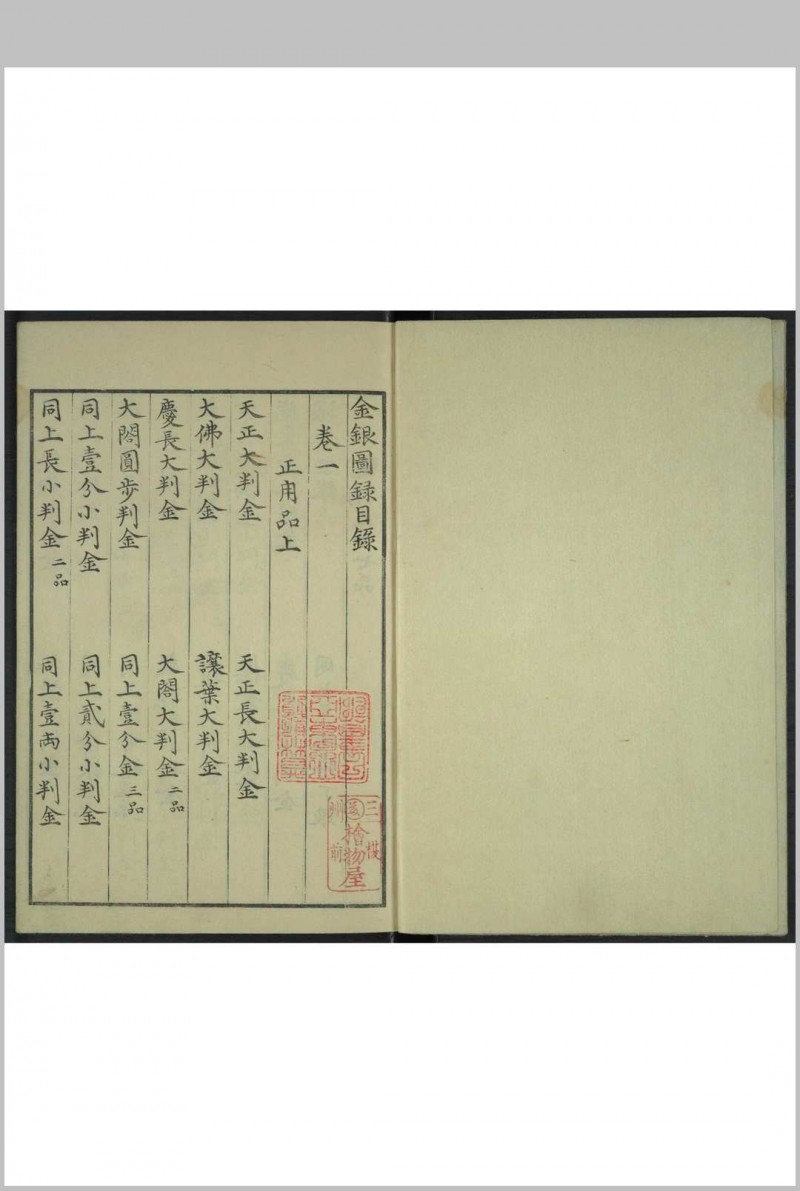 金銀圖録目錄
卷一
正用品上
天正大判金
天正長大判金
大佛大判金
讓葉大判金
慶長大判金
大閤大判金 二品
大閤圓歩判金
同上壹分金 三品
同上壹分小判金
同上貳分小判金
同上長小判金 二品
同上壹两小判金
三州
檜物屋